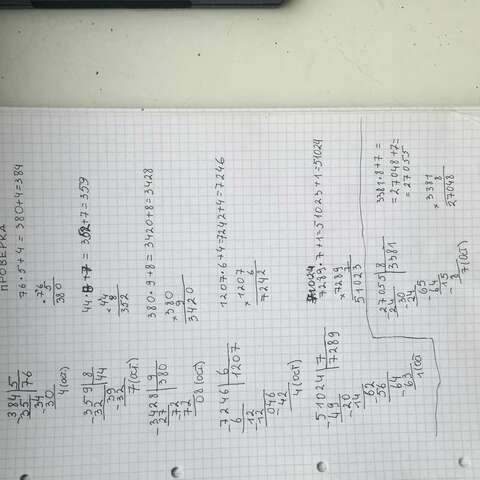 ПРОВЕРКА
384 | 5
35 | 76
34
30
4 (ост)
76·5+4 = 380+4=384
×76
5
380
359 | 8
32 | 44
39
32
7 (ост)
44·8+7 = 352+7=359
×44
8
352
3428 | 9
27 | 380
72
72
08 (ост)
380·9+8 = 3420+8=3428
×380
9
3420
7246 | 6
6 | 1207
12
12
046
42
4 (ост)
1207·6+4=7242+4=7246
×1207
6
7242
51024 | 7
49 | 7289
20
14
62
56
64
63
1 (ост
7289·7+1=51023+1=51024
×7289
7
51023
27055 | 8
24 | 3381
30
24
65
64
15
8
7 (ост)
3381·8+7=
=27048+7=
=27055
×3381
8
27048